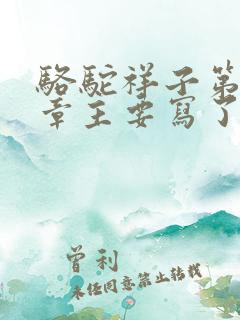 駱駝祥子第
章主要寫了
曾利
未經同意禁止轉載